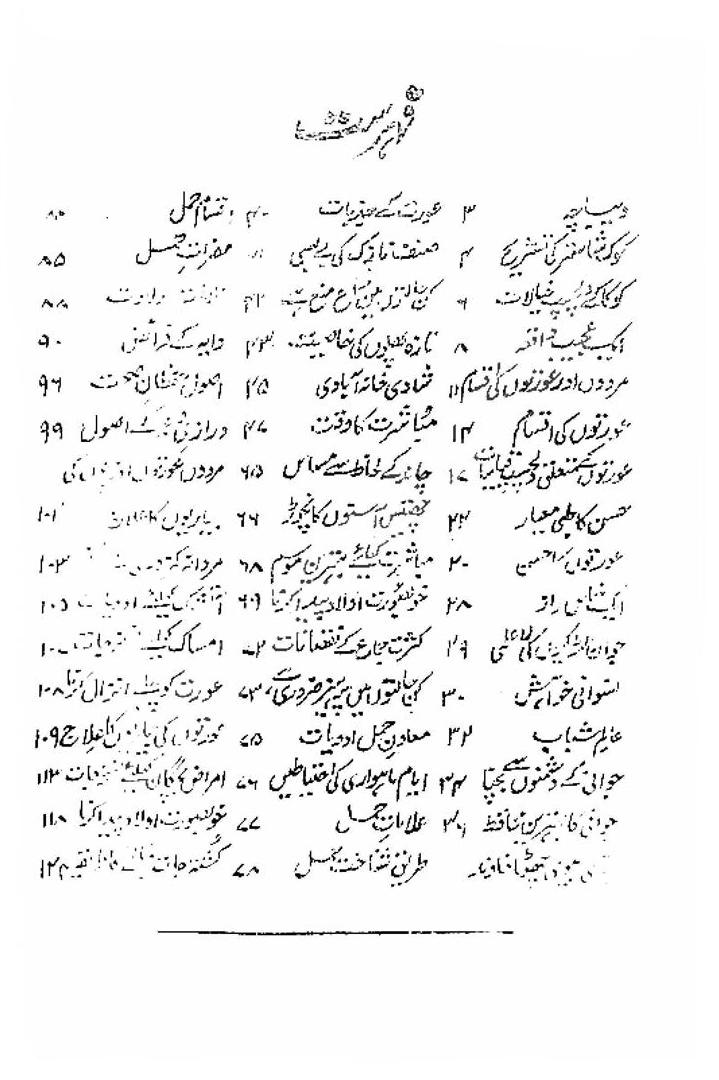 فہرست
دیباچہ ۳
کوک شاستر کی تشریح ۴
کوکا کے دلچسپ خیالات ۶
ایک عجیب واقعہ ۸
مردوں اور عورتوں کی اقسام ۱۱
عورتوں کی اقسام ۱۴
عورتوں کے متعلق دلچسپ ۱۷
حسن کا طبی معیار ۲۲
عورتوں کا حسن ۲۰
ایک شناس راز ۲۸
جوان لڑکیوں کی ۲۹
نسوانی خواہش ۳۰
عالم شباب ۳۲
جوانی کے دشمنوں سے بچنا ۳۴
جوانی کا بہترین محافظ ۳۶
عورت کے جذبات ۴۰
صنف نازک کی بے بسی
کن حالتوں میں جماع منع ہے ۴۲
تازہ پھلوں کی ۴۳
شادی خانہ آبادی ۴۵
مباشرت کا وقت ۴۷
چاند کے لحاظ سے مسائل ۶۵
چھتیس آسنوں کا نچوڑ ۶۶
مباشرت کیلئے بہترین موسم ۶۸
خوبصورت اولاد پیدا کرنا ۶۹
کثرت جماع کے نقصانات ۷۲
کن حالتوں میں پرہیز ضروری ہے ۷۳
معاون حمل ادویات ۷۵
ایام ماہواری کی احتیاطیں ۷۶
علامات حمل ۷۷
طریق شناخت حمل ۷۸
اقسام حمل ۸۰
مضرات حمل ۸۵
ولادت ۸۸
دایہ کے فرائض ۹۰
اصول حفظان صحت ۹۶
درازی عمر کے اصول ۹۹
مردوں عورتوں اور بچوں کی
بیماریوں کا علاج ۱۰۱
مردانہ ۱۰۳
کیلئے ادویات ۱۰۵
امساک کیلئے مجربات
عورت کو پہلے انزال کرنا ۱۰۸
عورتوں کی بیماریوں کا علاج ۱۰۹
امراض بچگان کیلئے مجربات ۱۱۳
خوبصورت اولاد پیدا کرنا ۱۱۸
کشتہ جات بنانے کے طریقے ۱۲۰